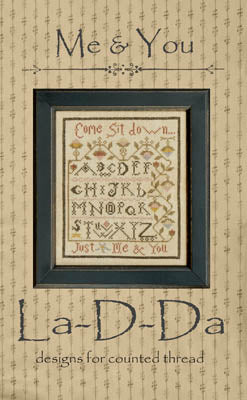 Me & You
Come Sit down...
ABCDEF
GHIJKL
MNOPQR
STUVWXYZ
Just Me & You
La-D-Da
designs for counted thread